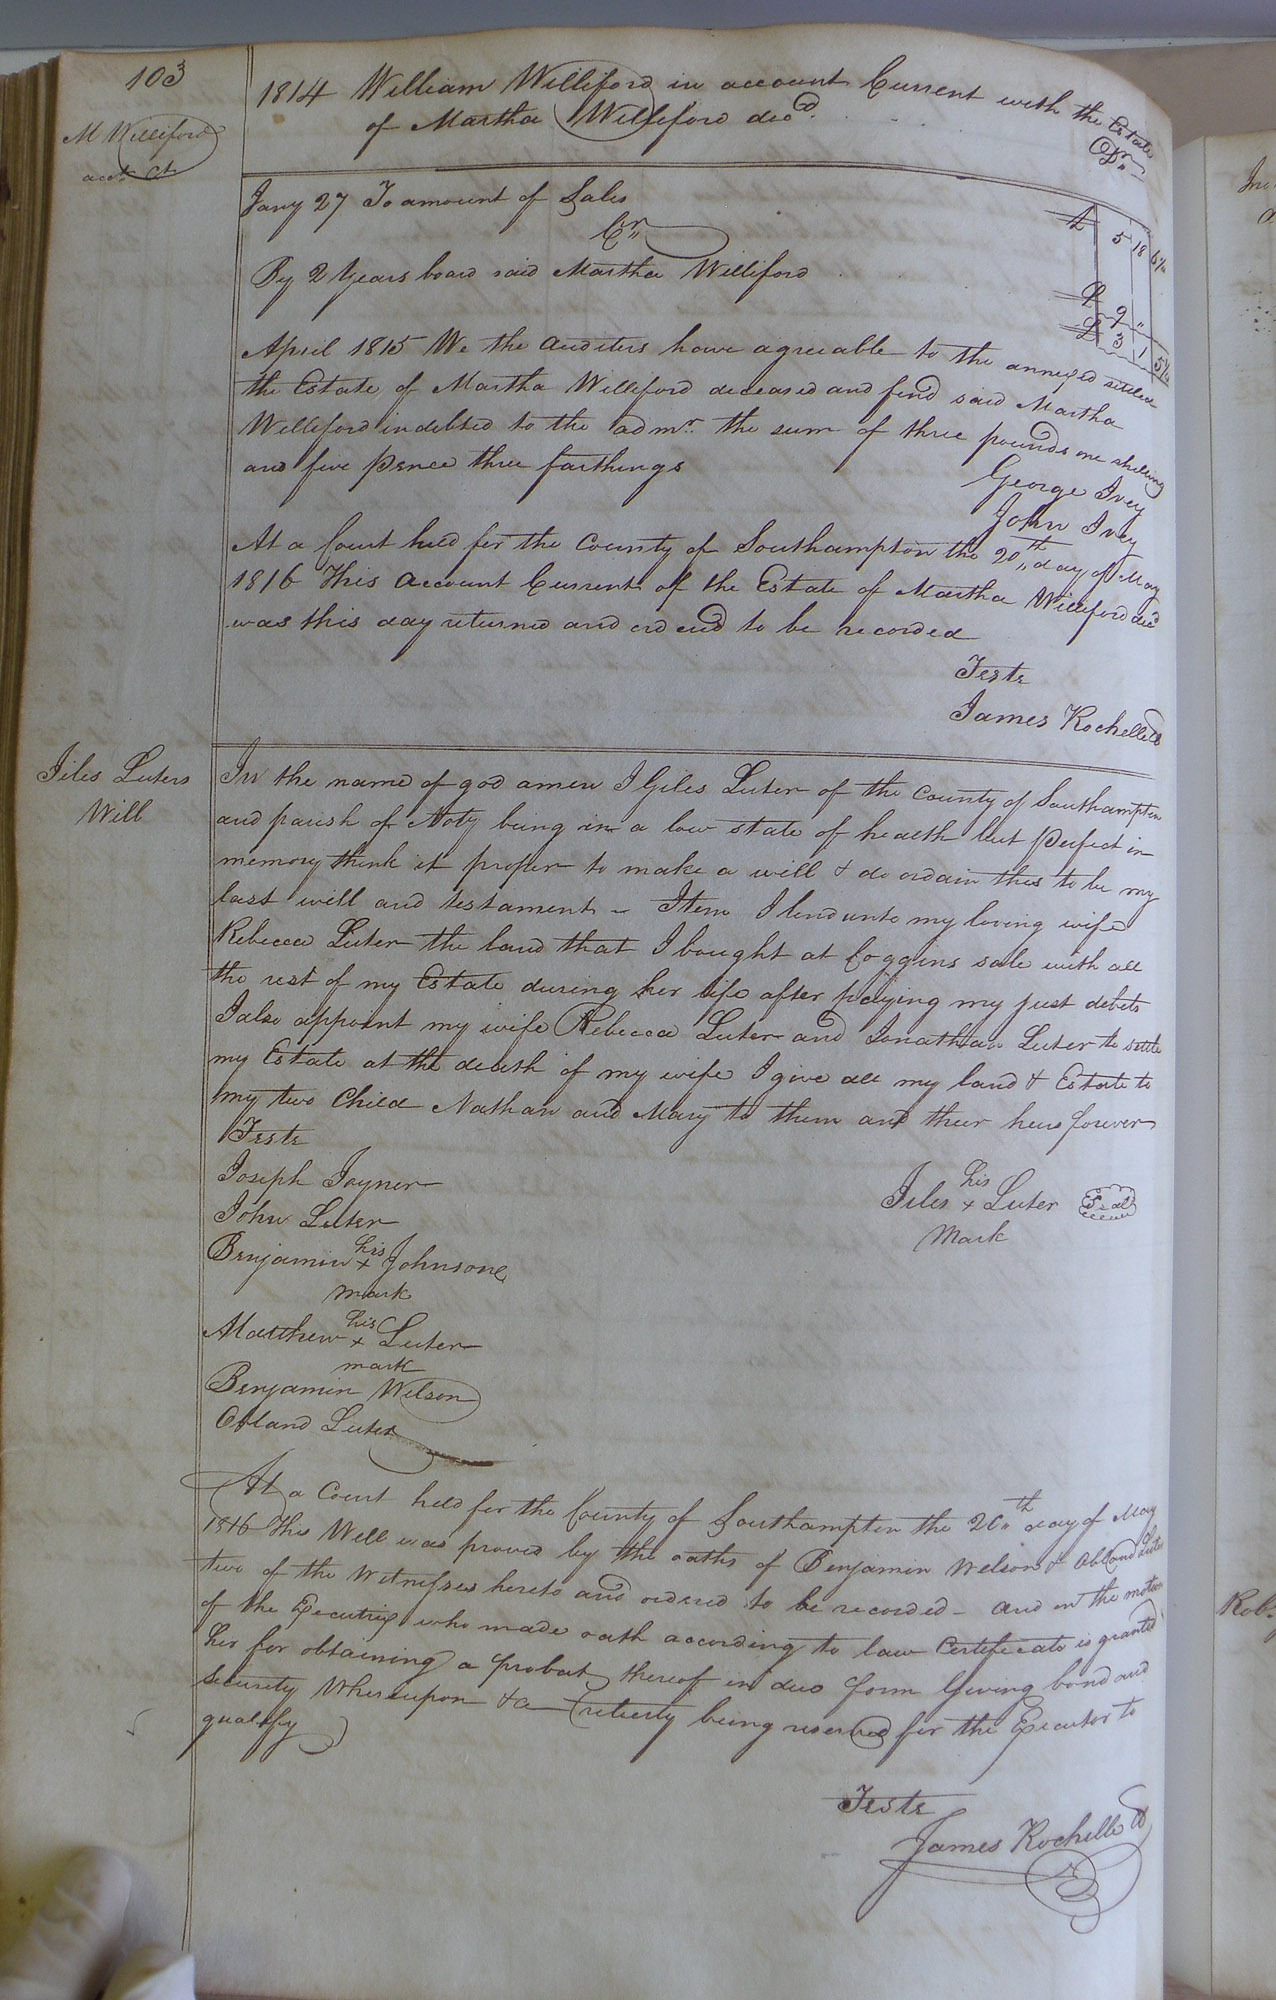 103
M Williford
acct Ct
1814 William Williford in account Current with the Estate
of Martha Williford decd.
Dr
Jany 27 To amount of Sales £ 5 18 6¼
Cr
By 2 Years board said Martha Williford £ 9 "
£ 3 1 5¾
April 1815 We the auditers have agreeable to the annexed settled
the Estate of Martha Williford deceased and find said Martha
Williford indebted to the admr. the sum of three pounds one shilling
and five pence three farthings
George Ivey
John Ivey
At a Court held for the County of Southampton the 20th day of May
1816 This account Current of the Estate of Martha Williford decd
was this day returned and ordered to be recorded
Teste
James Rochelle
Jiles Luters
Will
In the name of god amen I Giles Luter of the County of Southampton
and parish of Noty being in a low state of health but Perfect in
memory think it proper to make a will & do ordain this to be my
last will and testament - Item I lend unto my loving wife
Rebecca Luter the land that I bought at Coggins sale with all
the rest of my Estate during her life after paying my just debts
I also appoint my wife Rebecca Luter and Jonathan Luter to settle
my Estate at the death of my wife I give all my land & Estate to
my two Child Nathan and Mary to them and their heirs forever
Teste
Joseph Joyner
his
Jiles x Luter Seal
mark
John Luter
Benjamin his x Johnson
mark
Matthew his x Luter
mark
Benjamin Wilson
Obland Luter
At a Court held for the County of Southampton the 20th day of May
1816 This Will was proved by the oaths of Benjamin Welson & Obland Luter
two of the Witnesses hereto and ordered to be recorded - and on the motion
of the Executrix who made oath according to law Certificate is granted
her for obtaining a probat thereof in due form Giving bond and
security Whereupon &c liberty being reserved for the Executor to
qualify
Teste
James Rochelle